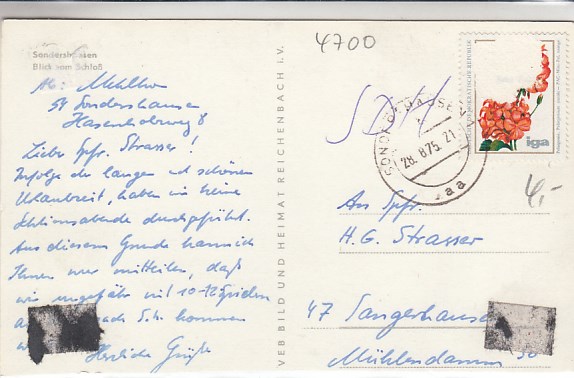 Sondershausen
Blick vom Schloß
Ab: Mehlhor
54 Sondershausen
Hasenholzweg 8
Lieber Spfr. Strasser!
Infolge der langen und schönen
Urlaubzeit, haben wir keine
durchgeführt.
Aus diesem Grunde kann ich
Ihnen nur mitteilen, daß
wir ungefähr mit 10-12 Spielern
nach S. kommen
Herzliche Grüße
VEB BILD UND HEIMAT REICHENBACH I. V.
4700
28.8.75.21
DEUTSCHE DEMOKRATISCHE REPUBLIK
iga
4,-
An Spfr.
H.G. Strasser
47 Sangerhausen
Mühlendamm